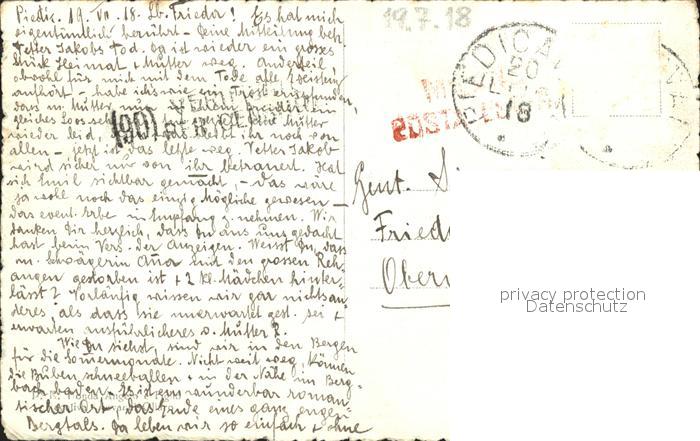 Piedic. 19. VII. 18. Lb. Frieder! Es hat mich
eigentümlich berührt – Deine Mitteilung betr.
Vetter Jakobs Tod. Da ist wieder ein grosses
Stück Heimat + Mutter weg. Anderteil
obwohl für mich mit dem Tode alles
aufhört – habe ich wie ein Trost empfunden,
dass m. Mutter nun
gleiches Loos Mutter
wieder leid, ihr noch von
allen – jetzt ist das letzte weg. Vetter Jakob
wird sicher nur von ihr betrauert. Hat
sich Emil sichtbar gemacht, – das wäre
ja wohl noch das einzig Mögliche gewesen –
das event. Erbe in Empfang z. nehmen. Wir
danken Dir herzlich, dass Du an uns gedacht
hast beim Vers. der Anzeigen. Weisst Du, dass
m. Schwägerin Anna mit den grossen Reh-
augen gestorben ist + 2 kl. Mädchen hinter-
lässt? Vorläufig wissen wir gar nichts an-
deres, als dass sie unerwartet gest. sei +
erwarten ausführlicheres v. Mutter R.
Wie Du siehst, sind wir in den Bergen
für die Sommermonate. Nicht weit weg, können
die Buben schneeballen + in der Nähe im Berg-
bach baden. Es ist ein wunderbar roman-
tischer Ort, das Ende eines ganz engen
Bergtals. Da leben wir so einfach + ohne
19.7.18
PIEDICA
20
18
(90)
POSTA
Gent. Si
Fried
Obern
privacy protection
Datenschutz